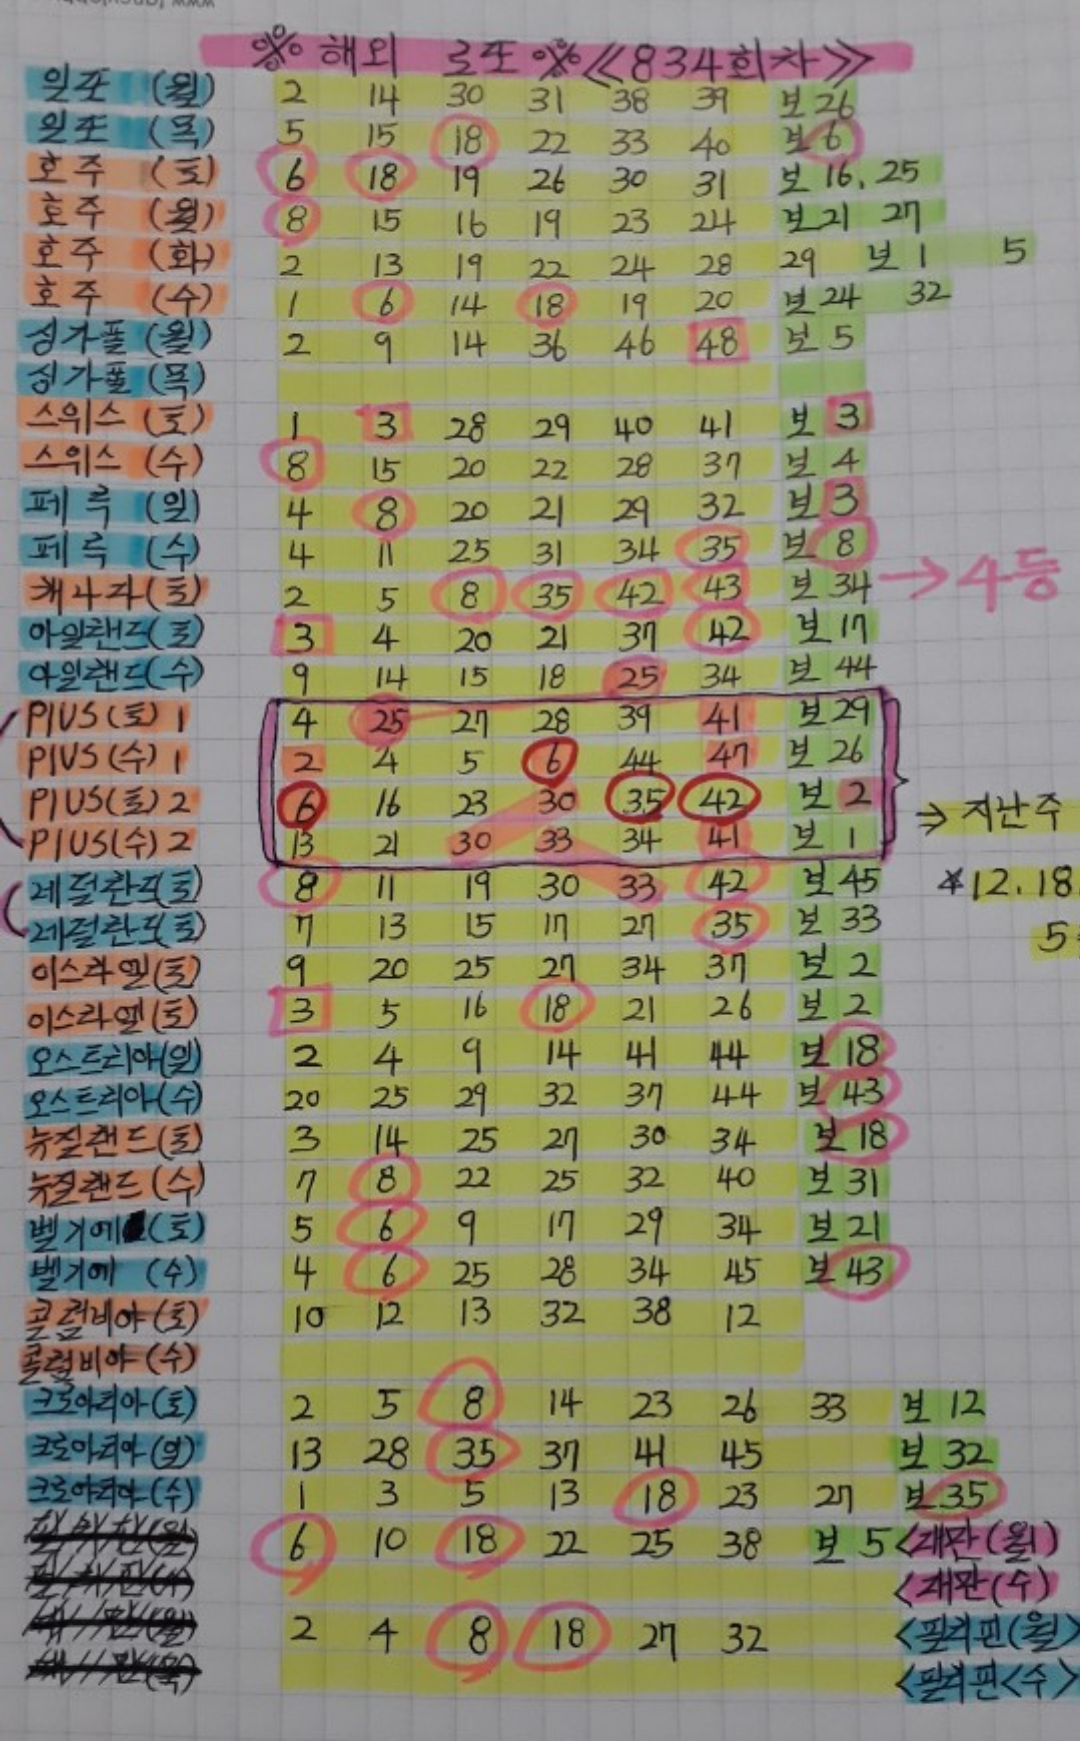 ※ 해외 로또 ※ 《834회차》
일본 (월) 2 14 30 31 38 39 보 26
일본 (목) 5 15 18 22 33 40 보 6
호주 (토) 6 18 19 26 30 31 보 16. 25
호주 (월) 8 15 16 19 23 24 보 21 27
호주 (화) 2 13 19 22 24 28 29 보 1 5
호주 (수) 1 6 14 18 19 20 보 24 32
싱가폴 (월) 2 9 14 36 46 48 보 5
싱가폴 (목)
스위스 (토) 1 3 28 29 40 41 보 3
스위스 (수) 8 15 20 22 28 37 보 4
페루 (일) 4 8 20 21 29 32 보 3
페루 (수) 4 11 25 31 34 35 보 8
캐나다(토) 2 5 8 35 42 43 보 34 → 4등
아일랜드(토) 3 4 20 21 37 42 보 17
아일랜드(수) 9 14 15 18 25 34 보 44
PIUS(토) 1 4 25 27 28 39 41 보 29
PIUS(수) 1 2 4 5 6 44 47 보 26
PIUS(토) 2 6 16 23 30 35 42 보 2 ⇒ 지난주
PIUS(수) 2 13 21 30 33 34 41 보 1
네덜란드(토) 8 11 19 30 33 42 보 45 *12.18
네덜란드(토) 7 13 15 17 27 35 보 33 5
이스라엘(토) 9 20 25 27 34 37 보 2
이스라엘(토) 3 5 16 18 21 26 보 2
오스트리아(일) 2 4 9 14 41 44 보 18
오스트리아(수) 20 25 29 32 37 44 보 43
뉴질랜드(토) 3 14 25 27 30 34 보 18
뉴질랜드(수) 7 8 22 25 32 40 보 31
벨기에 (토) 5 6 9 17 29 34 보 21
벨기에 (수) 4 6 25 28 34 45 보 43
콜럼비아(토) 10 12 13 32 38 12
콜럼비아(수)
크로아티아(토) 2 5 8 14 23 26 33 보 12
크로아티아(일) 13 28 35 37 41 45 보 32
크로아티아(수) 1 3 5 13 18 23 27 보 35
6 10 18 22 25 38 보 5 <대만(월)
<대만(수)
2 4 8 18 27 32 <필리핀(월)
<필리핀<수>